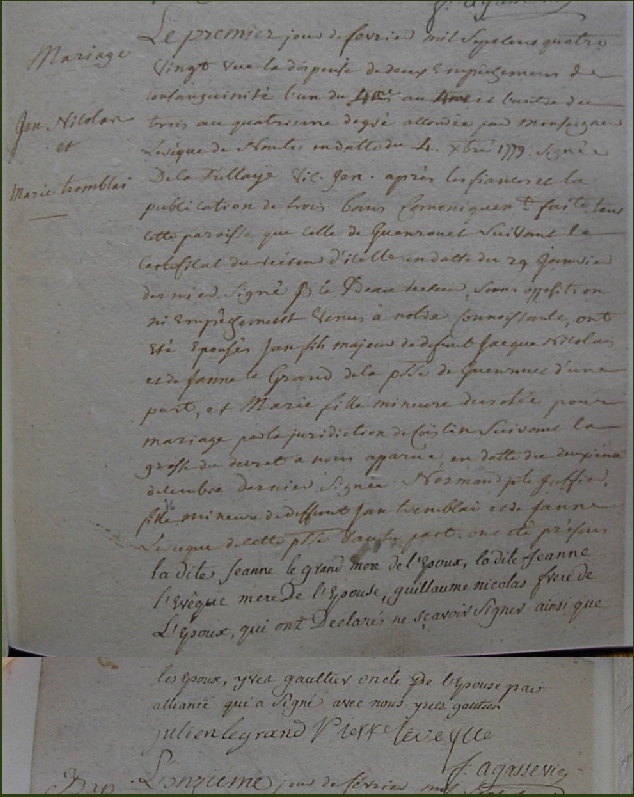 f. agassevic
Le premier jour de fevrier mil sept cens quatre
Mariage
vingt vue la dispense de deux Empêchemens de
consanguinité l'un du 4me au 4me et l'autre du
Jan Nicolas
trois au quatrieme degré accordée par monseigneur
et
L'evêque de Nantes en datte du 4. Xbre 1779. Signée
Marie tremblai
De la Tullaye Vic. gen. après les fiances et la
publication de trois bans Canoniquemt. faite tant
cette paroisse que celle de Guenrouet Suivant le
Certificat du recteur d'icelle en datte du 29 Janvier
dernier Signé le Beau recteur, Sans opposition
ni Empêchement venus à notre Connoissance, ont
été Epousés Jan fils majeur de defunt Jacque Nicolas
et de Janne le Grand de la psse de Guenrouet d'une
part, et Marie fille mineure decretée pour
mariage par la juridiction de Suivant la
grosse du decret à nous apparue, en datte du
decembre dernier Signée Normand
fille mineure de deffunt Jan tremblai et de Janne
Leveque de cette psse d'autre part. ont été présens
la dite Jeanne le grand mere de l'Epoux, la dite Jeanne
l'Evêque mere De l'Epouse, guillaume nicolas frere de
L'Epoux, qui ont Declarés ne sçavoir Signer ainsi que
les Epoux, yves gaultier oncle De l'Epouse par
alliance qui a Signé avec nous yves gautier
julien legrand Pierre leveque
f. agassevic
Bap L'onzieme jour de fevrier mil